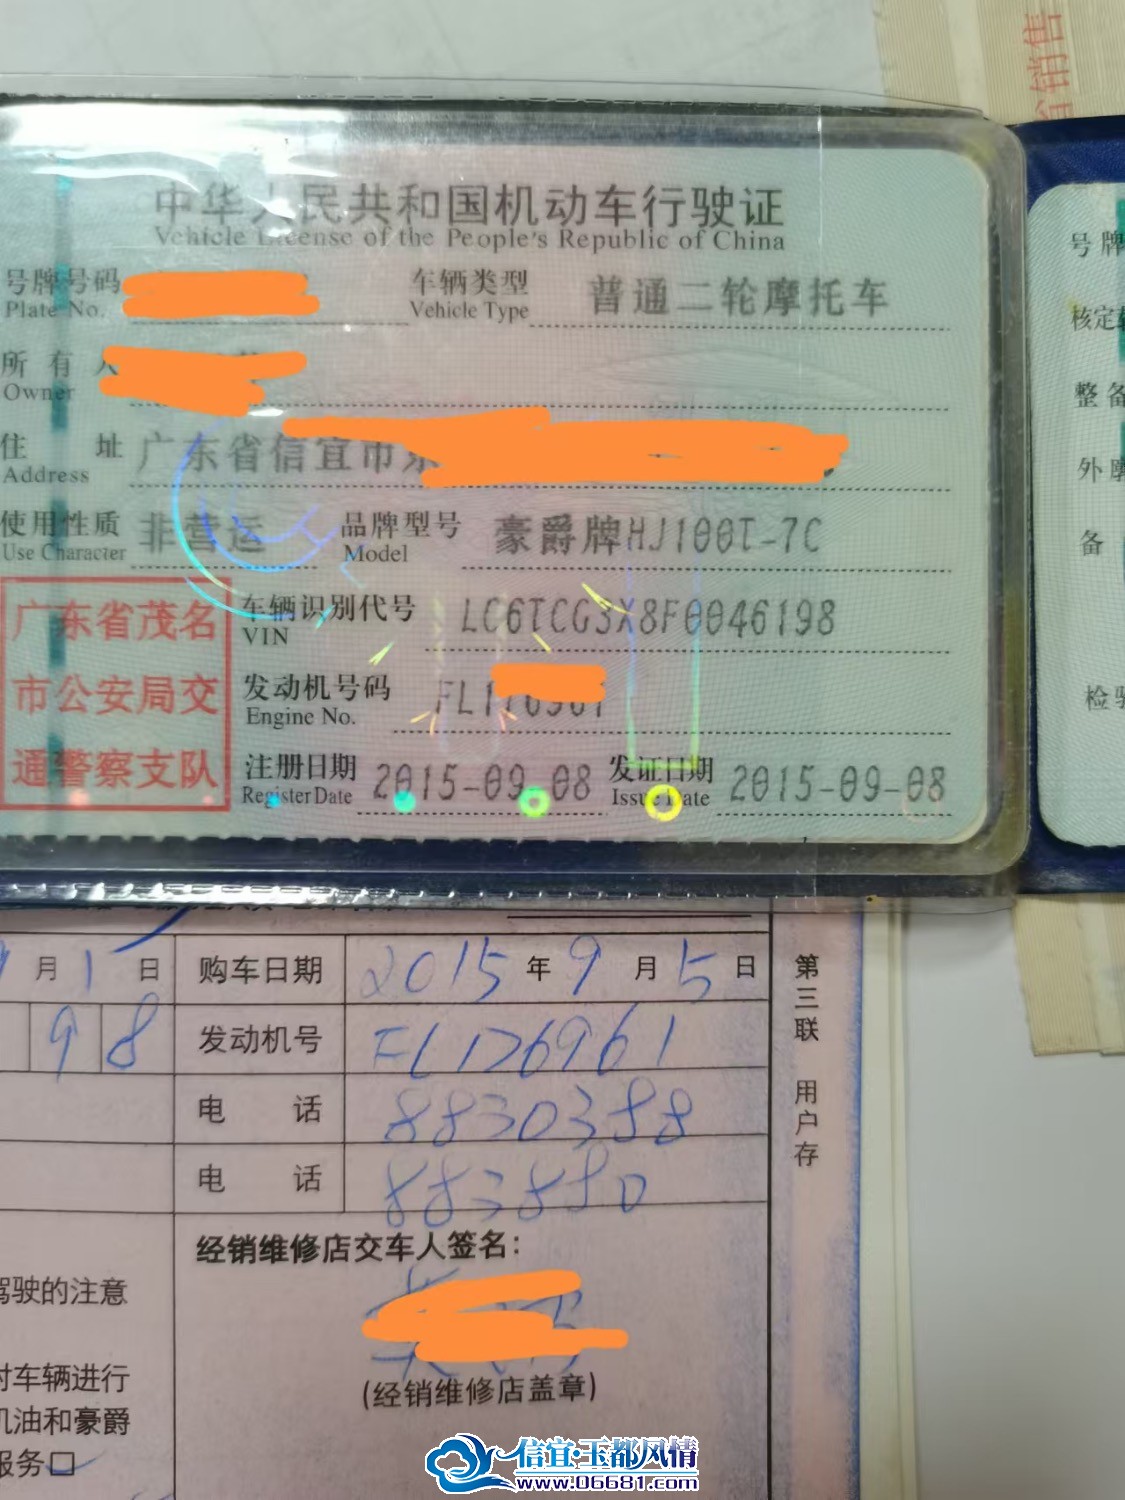 省销售
中华人民共和国机动车行驶证
Vehicle License of the People's Republic of China
号牌号码
Plate No.
车辆类型
Vehicle Type
普通二轮摩托车
所有人
Owner
住址
Address
广东省信宜市东
使用性质
Use Character
非营运
品牌型号
Model
豪爵牌HJ100T-7C
广东省茂名
市公安局交
通警察支队
车辆识别代号
VIN
LC6TCG3X8F0046198
发动机号码
Engine No.
注册日期
Register Date
2015-09-08
发证日期
Issue Date
2015-09-08
号牌
核定
整备
外廓
备
检验
月1日
购车日期
2015年9月5日
98
发动机号
FL176961
电话
8830388
电话
883880
第三联 用户存
经销维修店交车人签名:
(经销维修店盖章)
驾驶的注意
对车辆进行
机油和豪爵
服务
信宜·玉都风情
www.06681.com